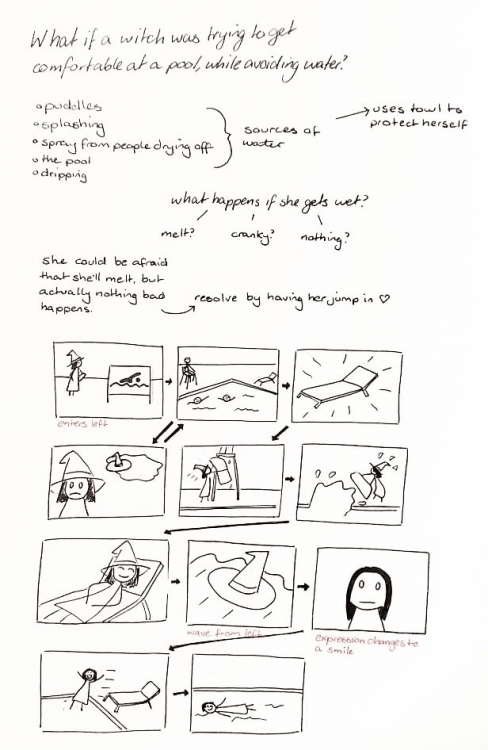 What if a witch was trying to get
comfortable at a pool, while avoiding water?
puddles
splashing
spray from people drying off
the pool
dripping
sources of
water
uses towl to
protect herself
what happens if she gets wet?
melt?
cranky?
nothing?
She could be afraid
that she'll melt, but
actually nothing bad
happens.
resolve by having her jump in ♡
enters left
wave from left
expression changes to
a smile